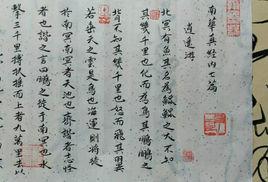 南華真經內七篇
逍遙游
北冥有魚其名為鯤鯤之大不知
其幾千里也化而為鳥其名為鵬鵬之
背不知其幾千里也怒而飛其翼
若垂天之雲是鳥也海運則將徙
於南冥南冥者天池也齊諧者志怪
者也諧之言曰鵬之徙於南冥也水
擊三千里摶扶搖而上者九萬里去以